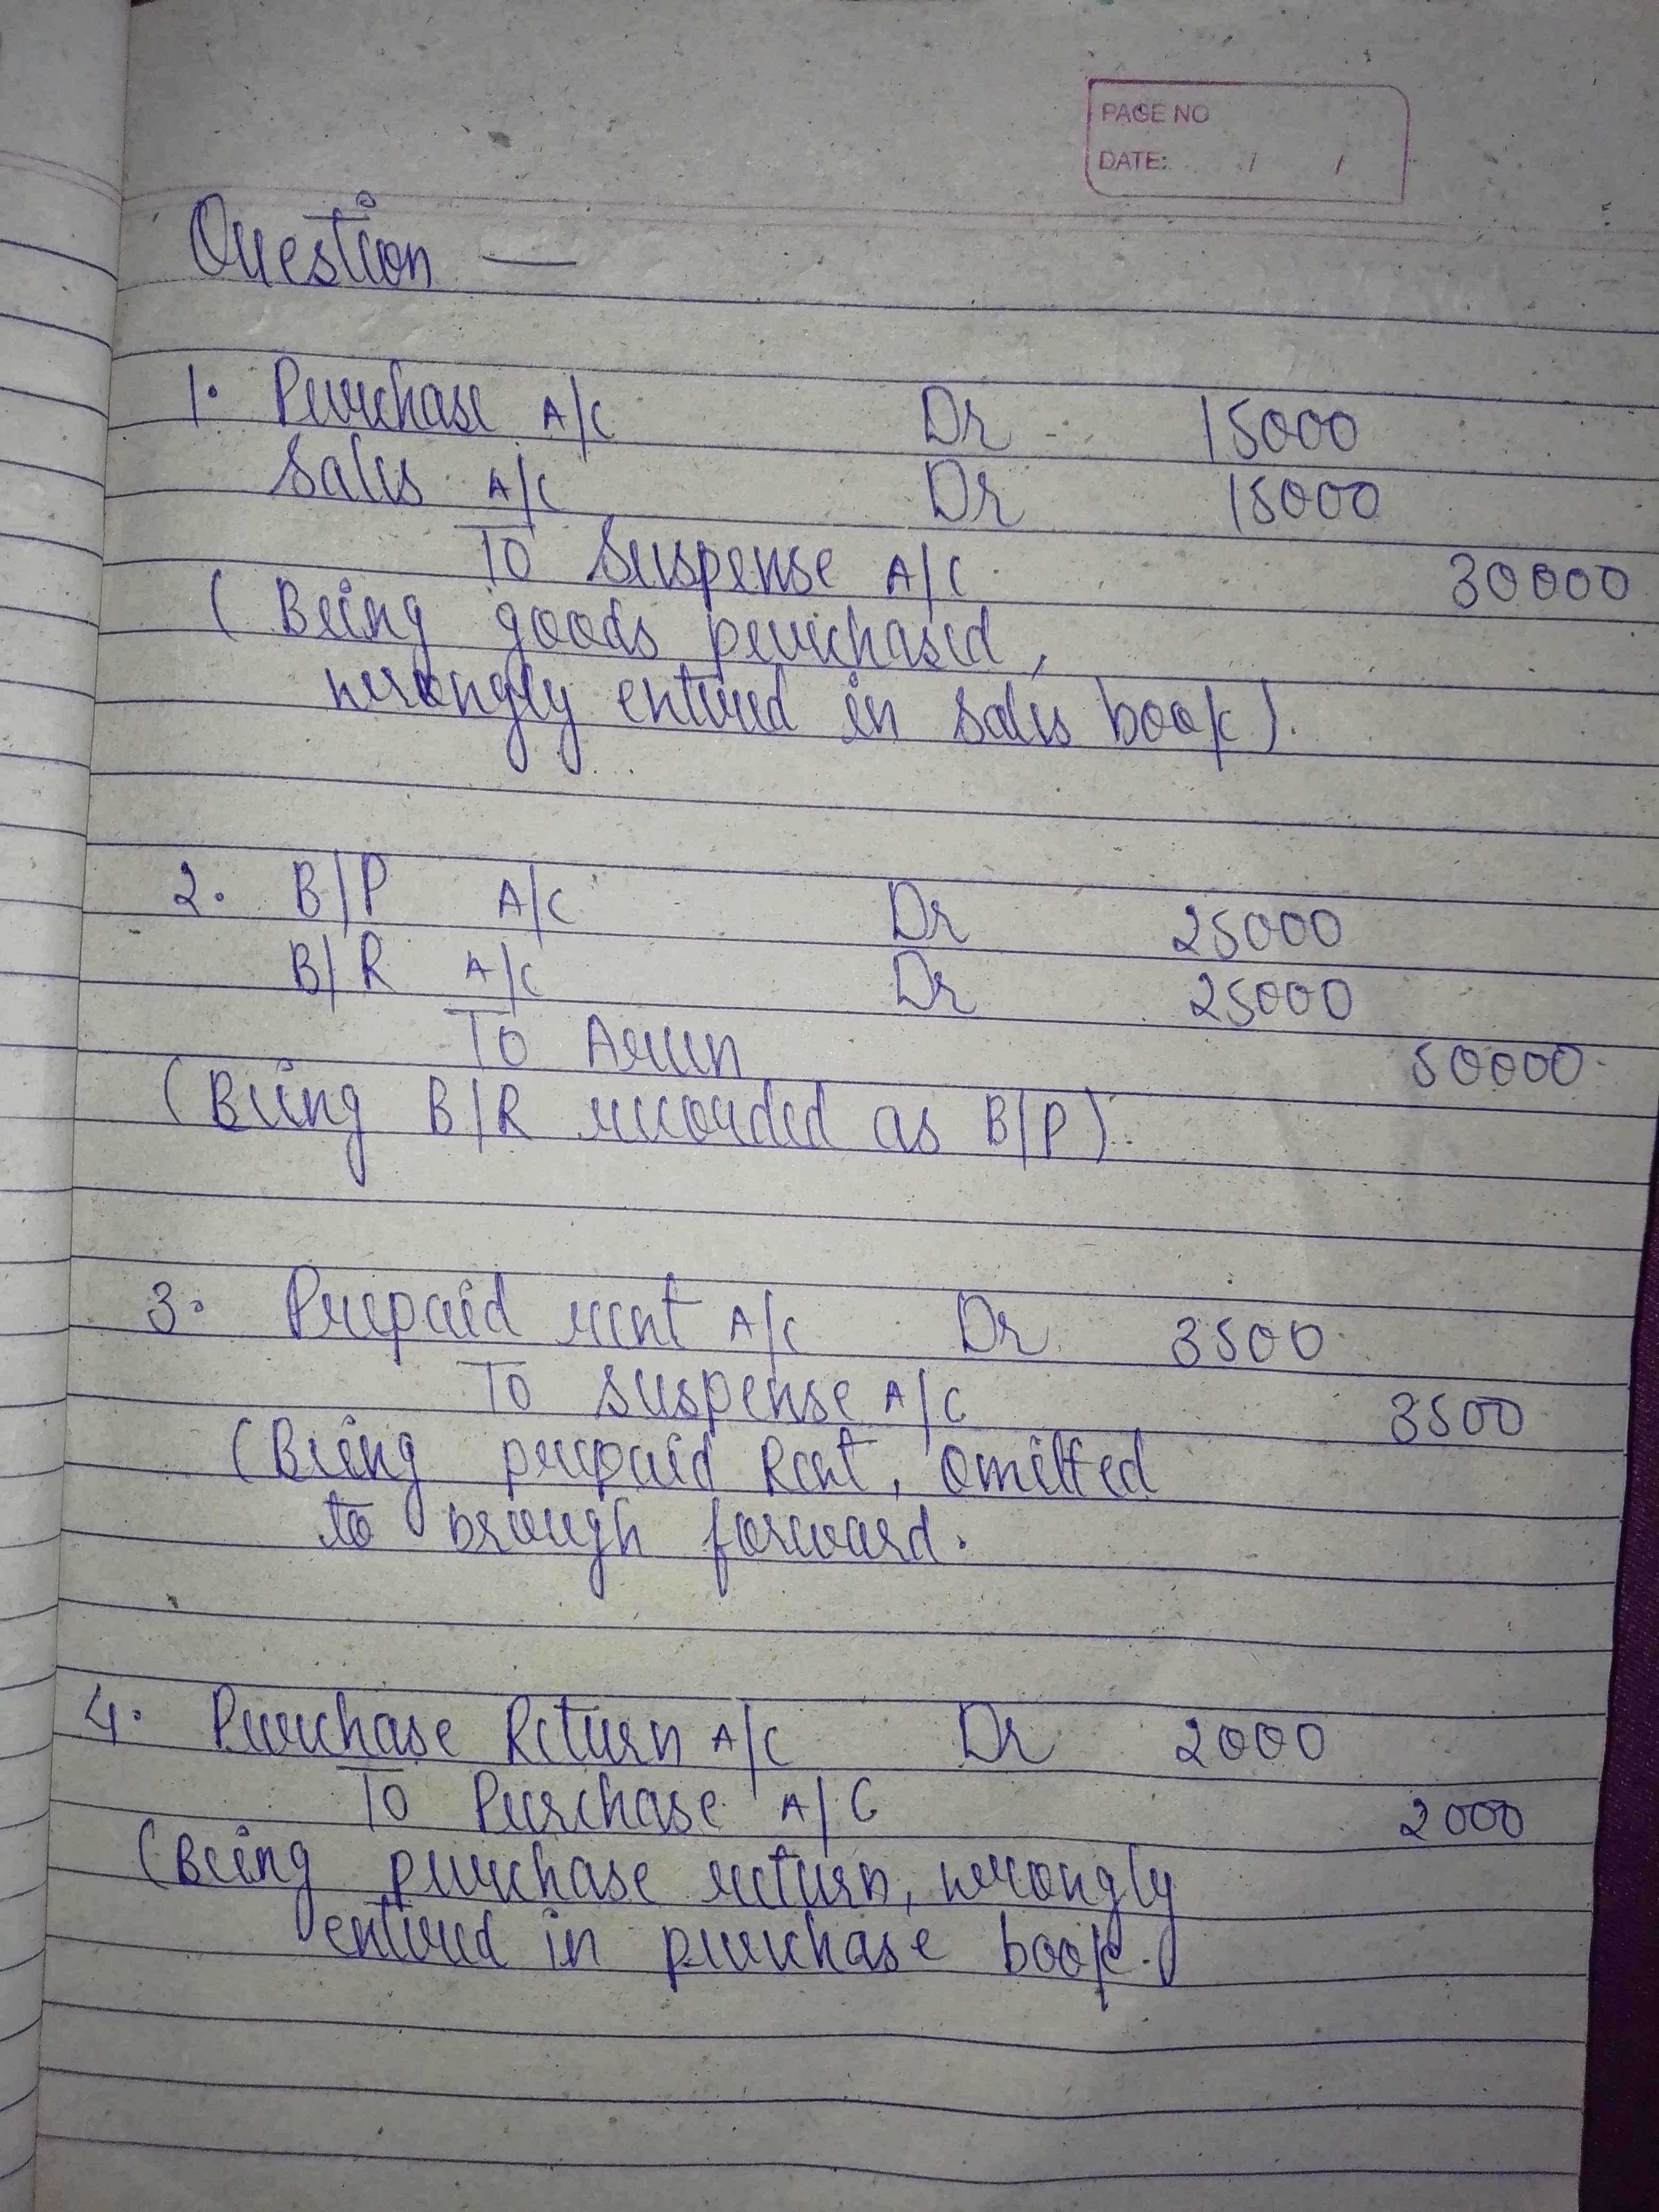 PAGE NO
DATE: / /
Question —
1. Purchase A/C Dr 15000
Sales A/C Dr 15000
To Suspense A/C 30000
( Being goods purchased,
wrongly entered in sales book).
2. B/P A/C Dr 25000
B/R A/C Dr 25000
To Arun 50000
(Being B/R recorded as B/P).
3. Prepaid rent A/C Dr 3500
To Suspense A/C 3500
(Being prepaid Rent, omitted
to brough forward.
4. Purchase Return A/C Dr 2000
To Purchase A/C 2000
(Being purchase return, wrongly
entered in purchase book.)